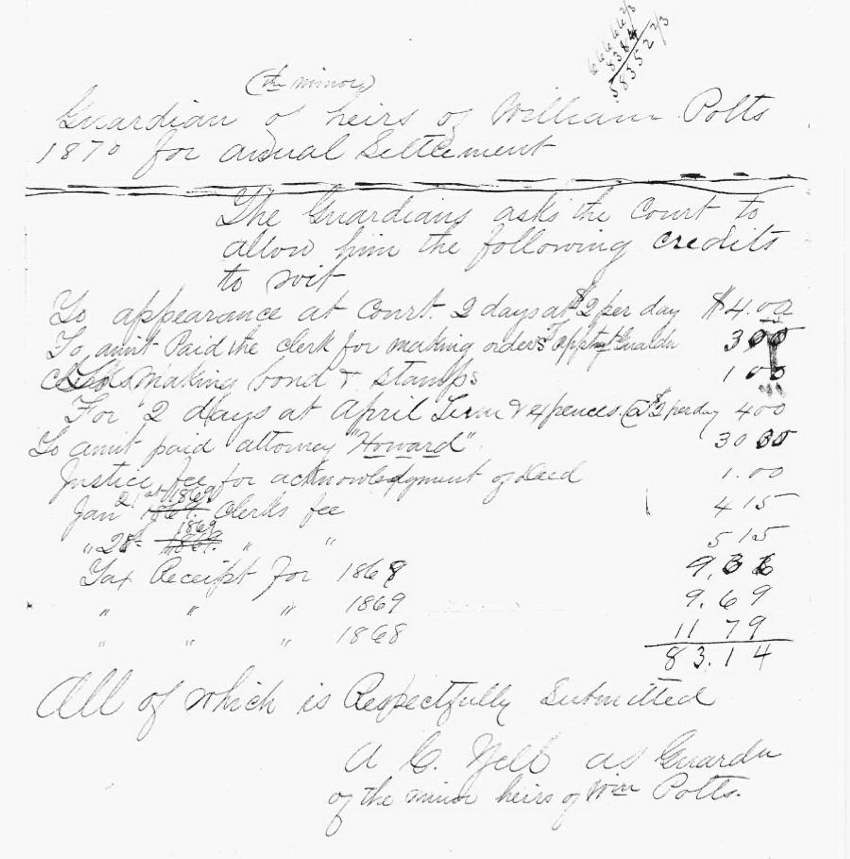 66666 2/3
8384
58352 2/3
(the minor)
Guardian of heirs of William Potts
1870 for anual Settlement
The Guardians asks the Court to
allow him the following credits
to wit
To appearance at Court. 2 days at $2 per day $4.00
To amt Paid the clerk for making orders
making bond & stamps 1 00
For 2 days at April Term & expences @ $2 per day 4 00
To amt paid attorney "Howard" 30 00
Justice fee for acknowledgment of deed 1.00
Jan 21st 1869 Clerks fee 4 15
" 28th 1869 " " 5 15
Tax Receipt For 1868
" " " 1869 9.69
" " " 1868 11 79
83.14
All of which is Respectfully Submitted
A C. Yell as Guardn
of the minor heirs of Wm Potts.